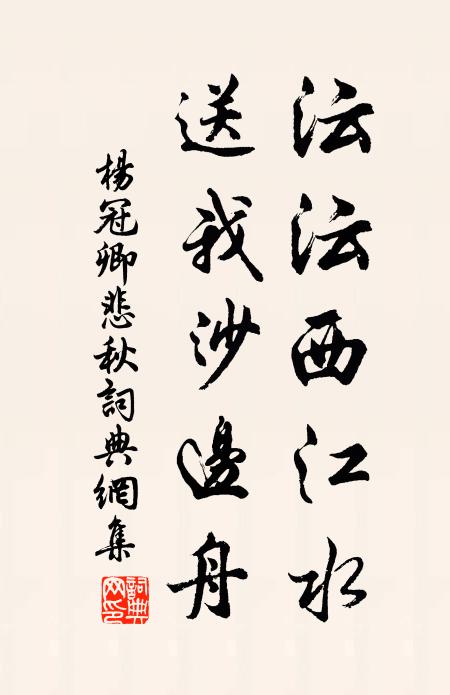 沄沄西江水
送我沙邊舟
楊冠卿悲秋詞典網集
詞典
网印